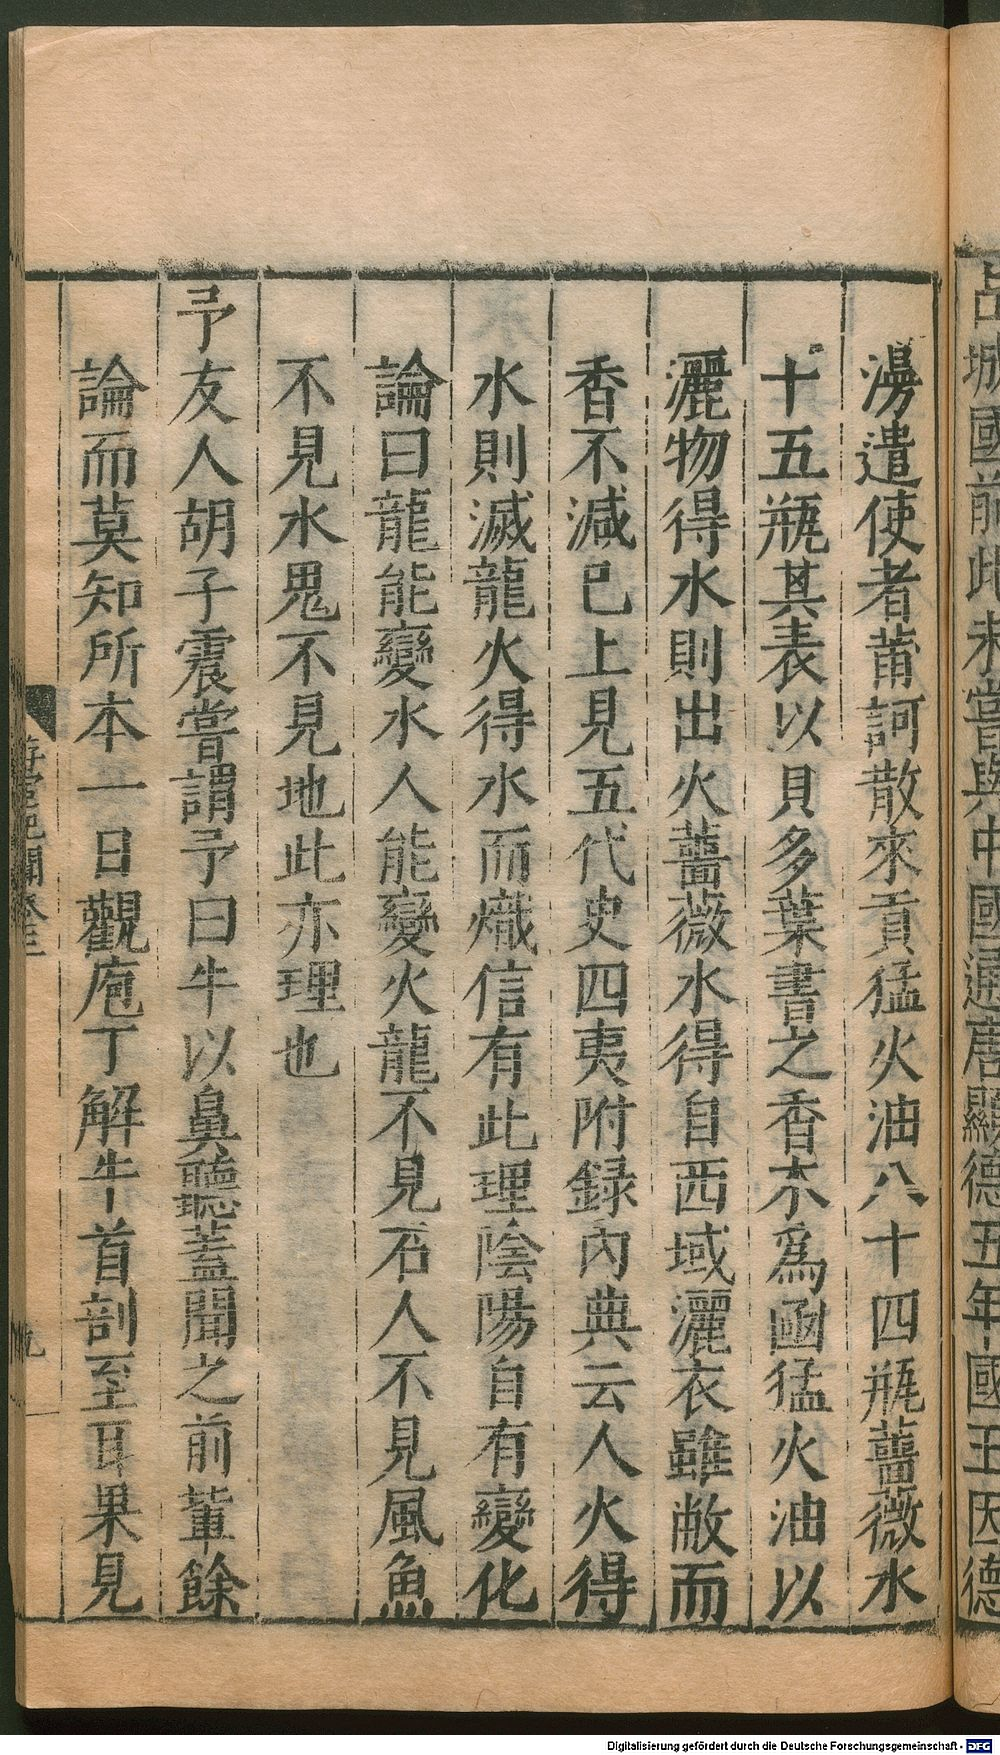 占城國前此未嘗與中國通唐顯德五年國王因德
漫遣使者莆訶散來貢猛火油八十四瓶薔薇水
十五瓶其表以貝多葉書之香木爲函猛火油以
灑物得水則出火薔薇水得自西域灑衣雖敝而
香不減已上見五代史四夷附録內典云人火得
水則滅龍火得水而熾信有此理陰陽自有變化
論曰龍能變水人能變火龍不見石人不見風魚
不見水鬼不見地此亦理也
予友人胡子震嘗謂予曰牛以鼻聽蓋聞之前輩餘
論而莫知所本一日觀庖丁解牛首剖至耳果見
游宦紀聞卷三
九
Digitalisierung gefördert durch die Deutsche Forschungsgemeinschaft - DFG